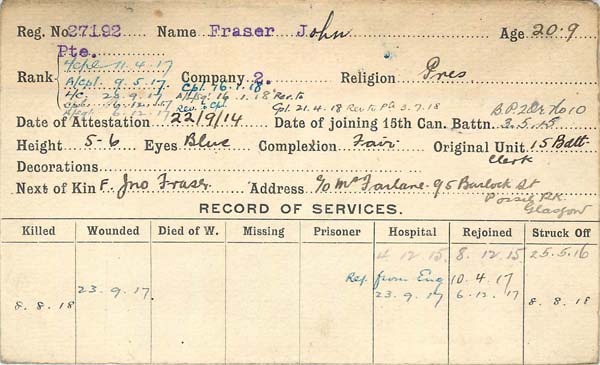 Reg. No. 27192 Name Fraser John Age 20.9
Pte.
Rank Company 2. Religion Pres
L/Cpl 11.4.17
A/Cpl. 9.5.17
Cpl. 21.4.18 Rev to Pte 3.7.18
Date of Attestation 22/9/14 Date of joining 15th Can. Battn. 3.5.15
Height 5-6 Eyes Blue Complexion Fair Original Unit 15 Batt
Decorations Clerk
Next of Kin F. Jno Fraser Address c/o McFarlane 95 Barlock St
Possil PK.
Glasgow
RECORD OF SERVICES.
Killed Wounded Died of W. Missing Prisoner Hospital Rejoined Struck Off
4 12 15. 8. 12. 15. 25.5.16
from Eng 10.4.17
23.9.17 23.9.17 6.12.17
8.8.18 8.8.18